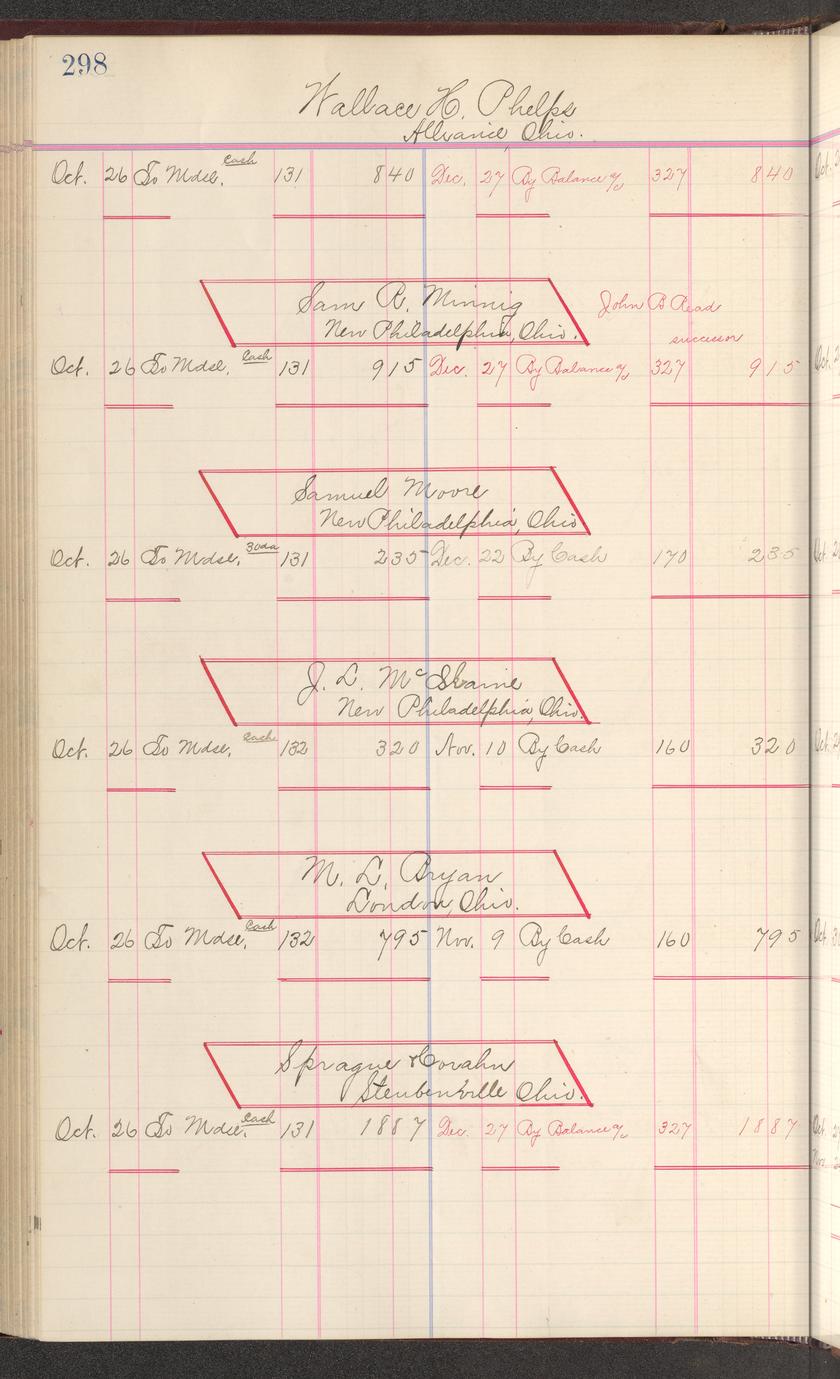 298
Wallace H. Phelps
Alliance, Ohio.
Oct. 26 To Mdse. Cash 131 840 Dec. 27 By Balance % 327 840
Sam R. Minnig John B Read
New Philadelphia, Ohio. successor
Oct. 26 To Mdse. Cash 131 915 Dec. 27 By Balance % 327 915
Samuel Moore
New Philadelphia, Ohio
Oct. 26 To Mdse. 30da 131 235 Dec. 22 By Cash 170 235
J. L. McIlvaine
New Philadelphia, Ohio.
Oct. 26 To Mdse. Cash 132 320 Nov. 10 By Cash 160 320
M. L. Bryan
London, Ohio.
Oct. 26 To Mdse. Cash 132 795 Nov. 9 By Cash 160 795
Sprague &
Steubenville Ohio.
Oct. 26 To Mdse. Cash 131 1887 Dec. 27 By Balance % 327 1887